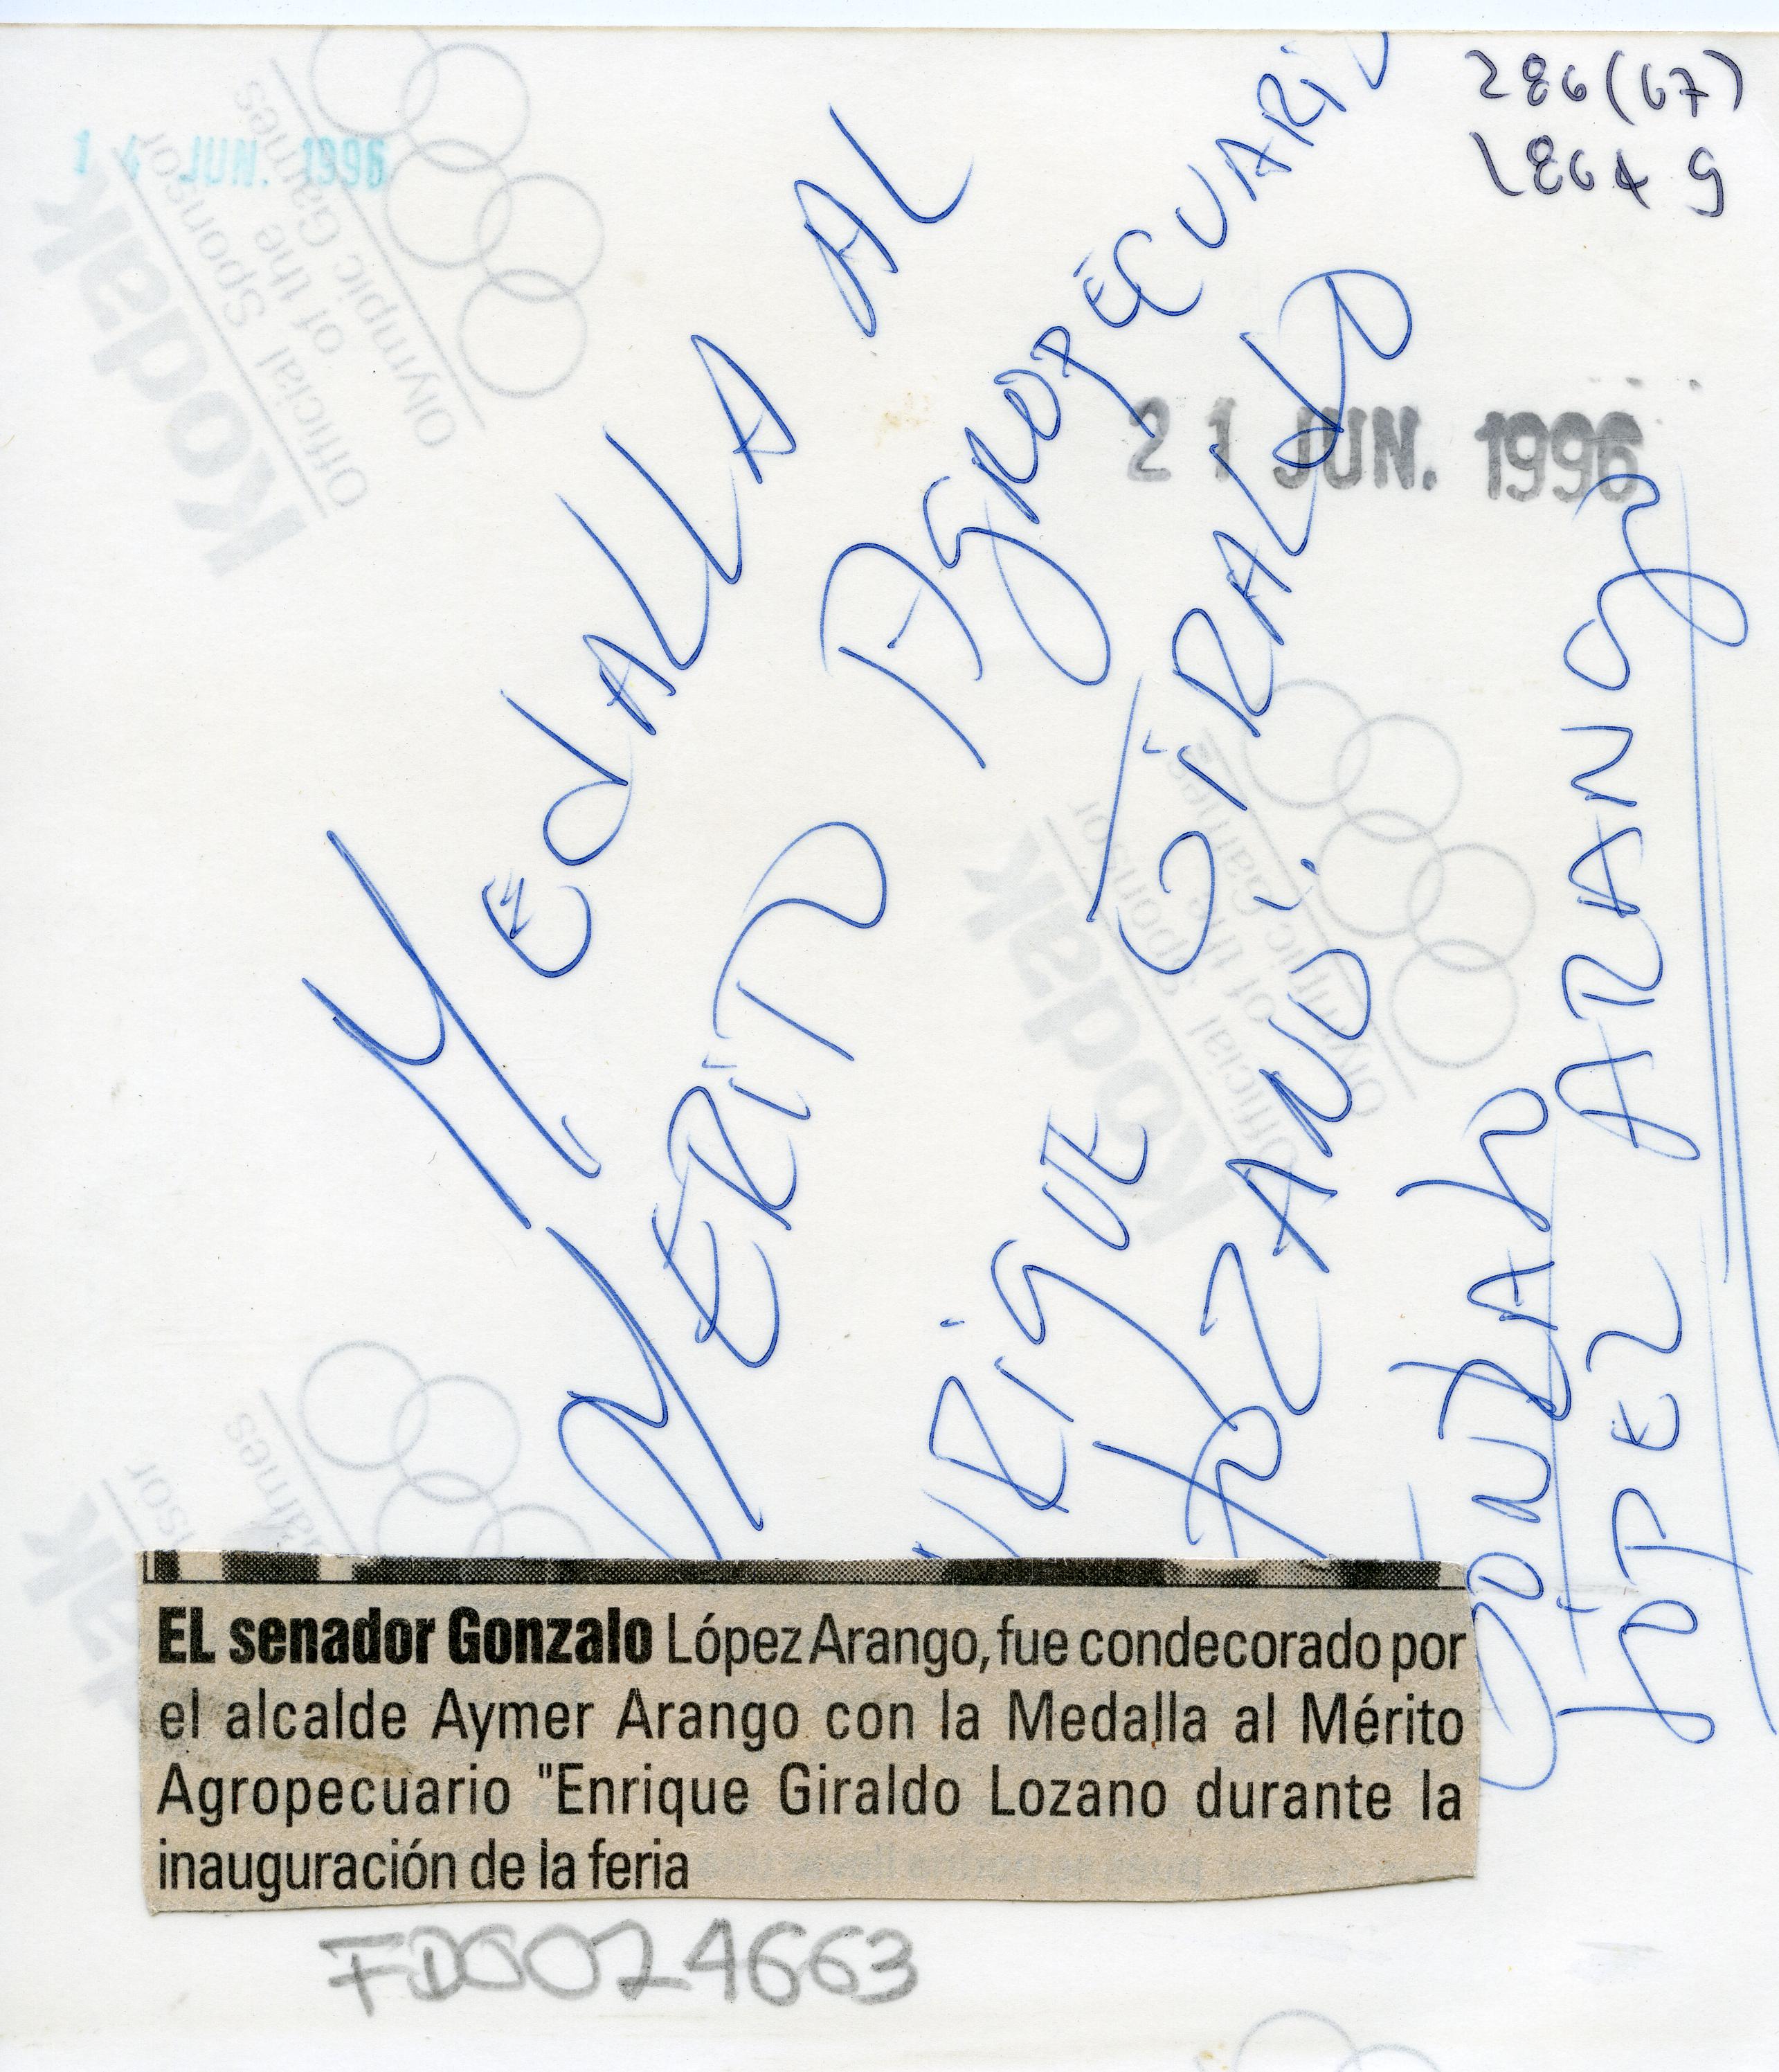 286(67)
1864 9
14 JUN. 1996
21 JUN. 1996
MEdALLA AL
MERiTO AgROPECUARiO
RiQUE GiRALdO
LOZANO.
GONZALO
LÓPEZ ARANgo
EL senador Gonzalo López Arango, fue condecorado por
el alcalde Aymer Arango con la Medalla al Mérito
Agropecuario "Enrique Giraldo Lozano durante la
inauguración de la feria
FD0024663
Kodak
Official Sponsor
of the
Olympic Games
Kodak
Official Sponsor
of the
Olympic Games